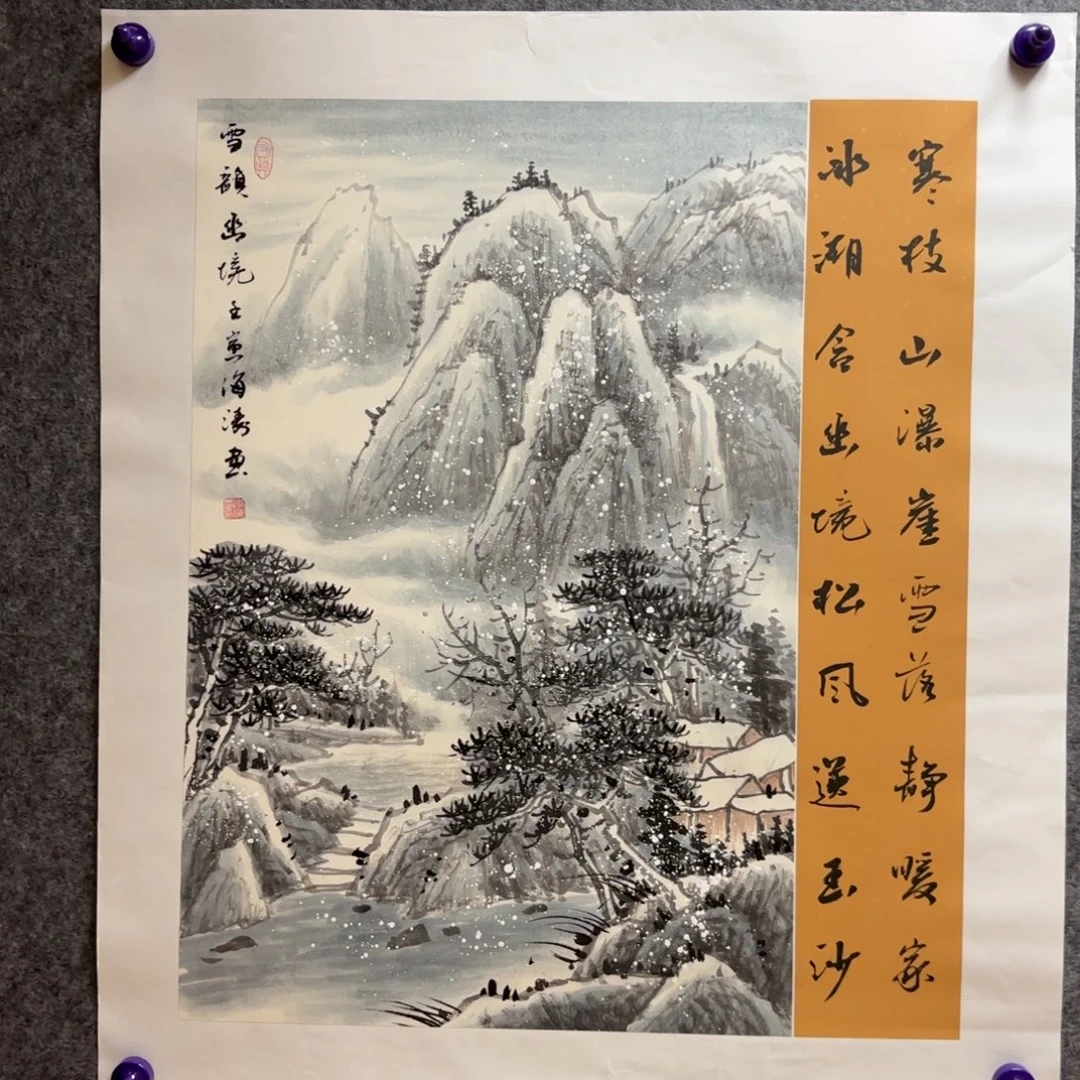 寒枝山瀑崖雪落静暖家
冰湖含幽境松风送玉沙
雪韻幽境壬寅海涛画